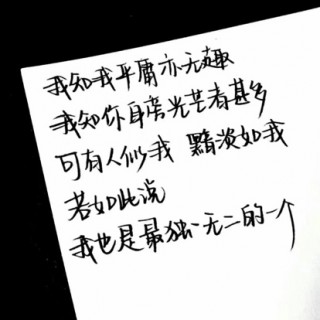 我知我平庸亦无趣
我知你身旁光芒者甚多
可有人似我 黯淡如我
若如此说
我也是最独一无二的一个